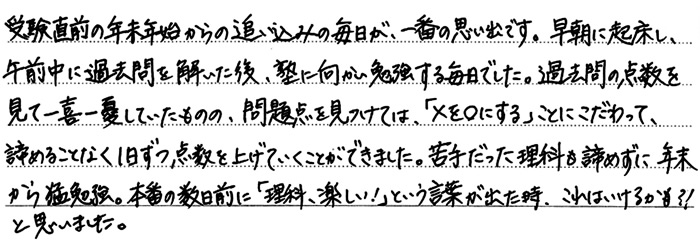 受験直前の年末年始からの追い込みの毎日が、一番の思い出です。早朝に起床し、
午前中に過去問を解いた後、塾に向かい勉強する毎日でした。過去問の点数を
見て一喜一憂していたものの、問題点を見つけては、「×を○にする」ことにこだわって、
諦めることなく1日ずつ点数を上げていくことができました。苦手だった理科も諦めずに年末
から猛勉強。本番の数日前に「理科、楽しい!」という言葉が出た時、これはいけるかも?!
と思いました。